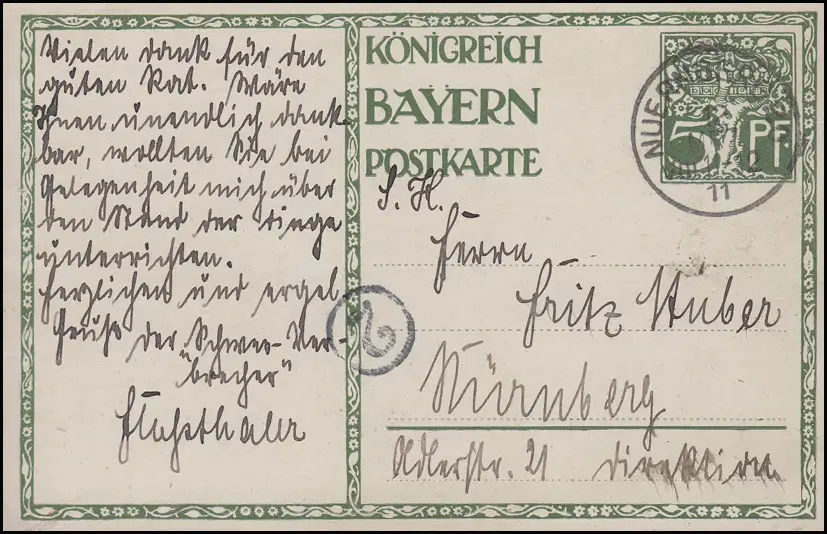 Vielen Dank für den
guten Rat. Wäre
Ihnen unendlich dank-
bar, wollten Sie bei
Gelegenheit mich über
den Stand der Dinge
unterrichten.
Herzlichen und ergeb
Gruß der Schwer-Ver-
"brecher"
KÖNIGREICH
BAYERN
POSTKARTE
5 PF.
NUERNB
11
S. H.
Herrn
Fritz Huber
Nürnberg
Adlerstr. 21 Direktion